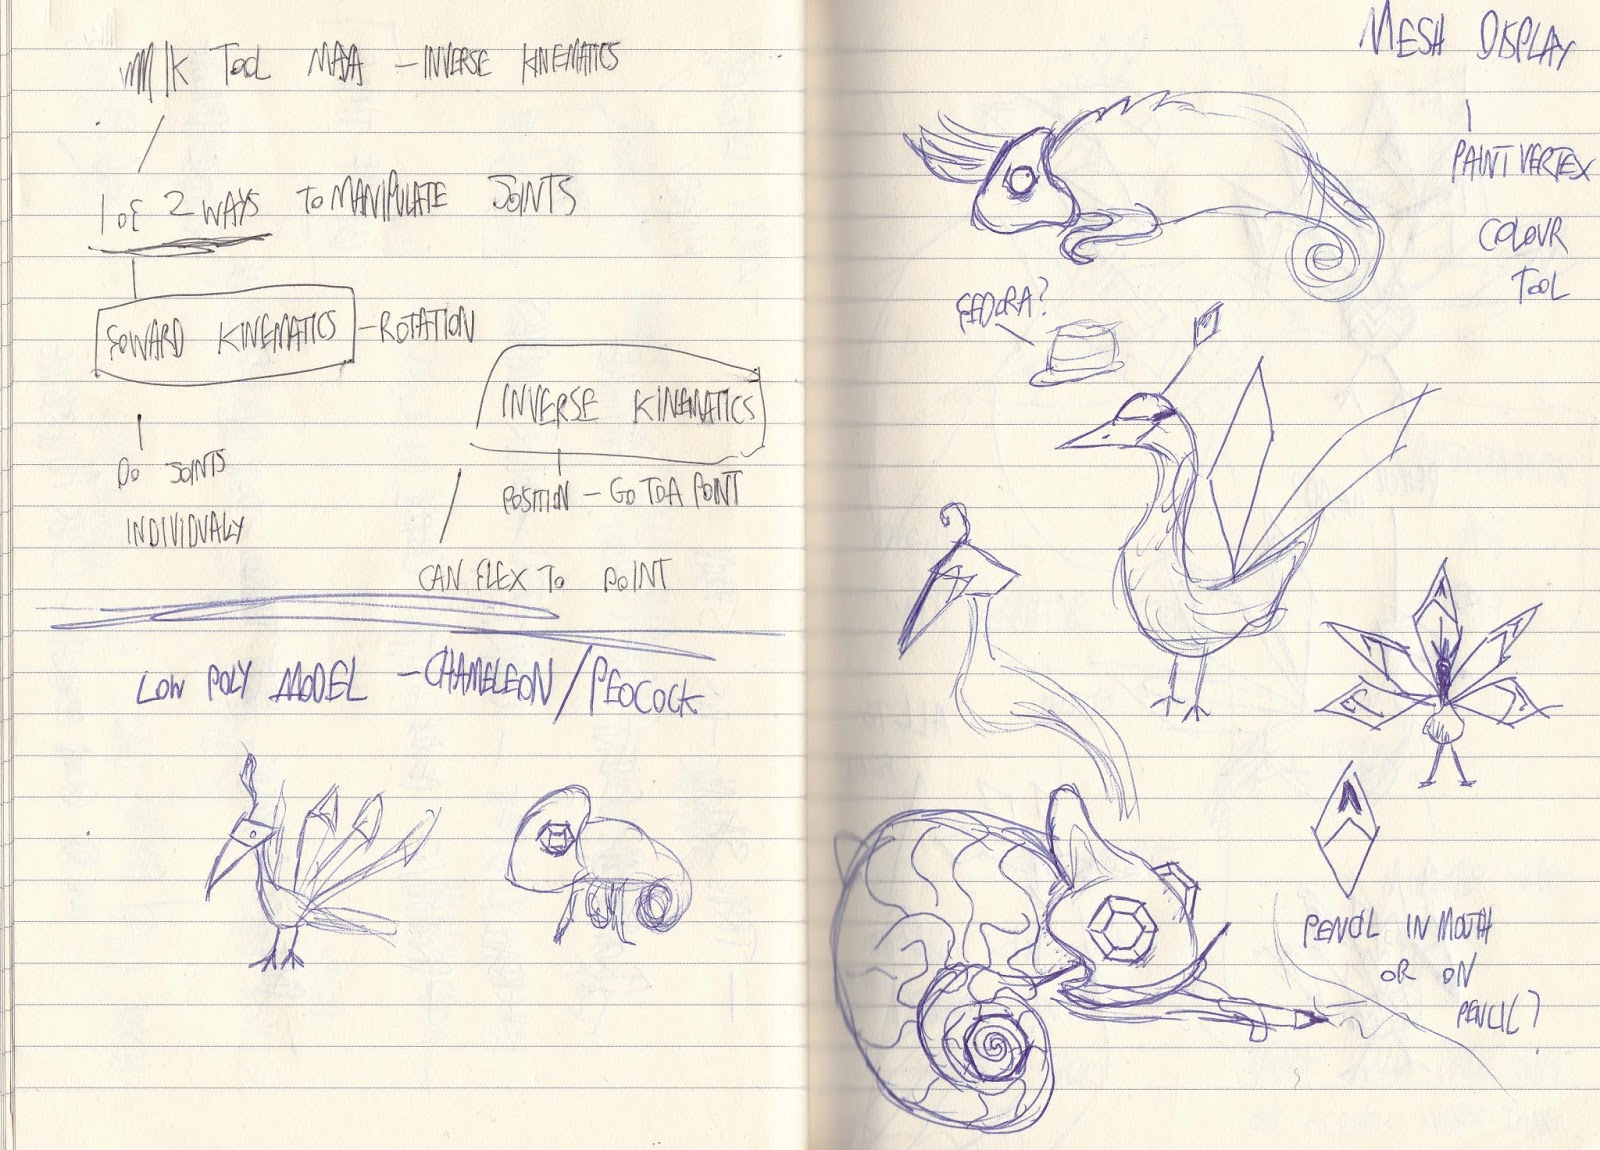 IK TOOL MAYA - INVERSE KINEMATICS
1 OF 2 WAYS TO MANIPULATE JOINTS
FOWARD KINEMATICS - ROTATION
INVERSE KINEMATICS
DO JOINTS
INDIVIDUALY
POSITION - GO TO A POINT
CAN FLEX TO POINT
LOW POLY MODEL - CHAMELEON/PEOCOCK
MESH DISPLAY
PAINT VERTEX
COLOUR
TOOL
FEDORA?
PENCIL IN MOUTH
OR ON
PENCIL?